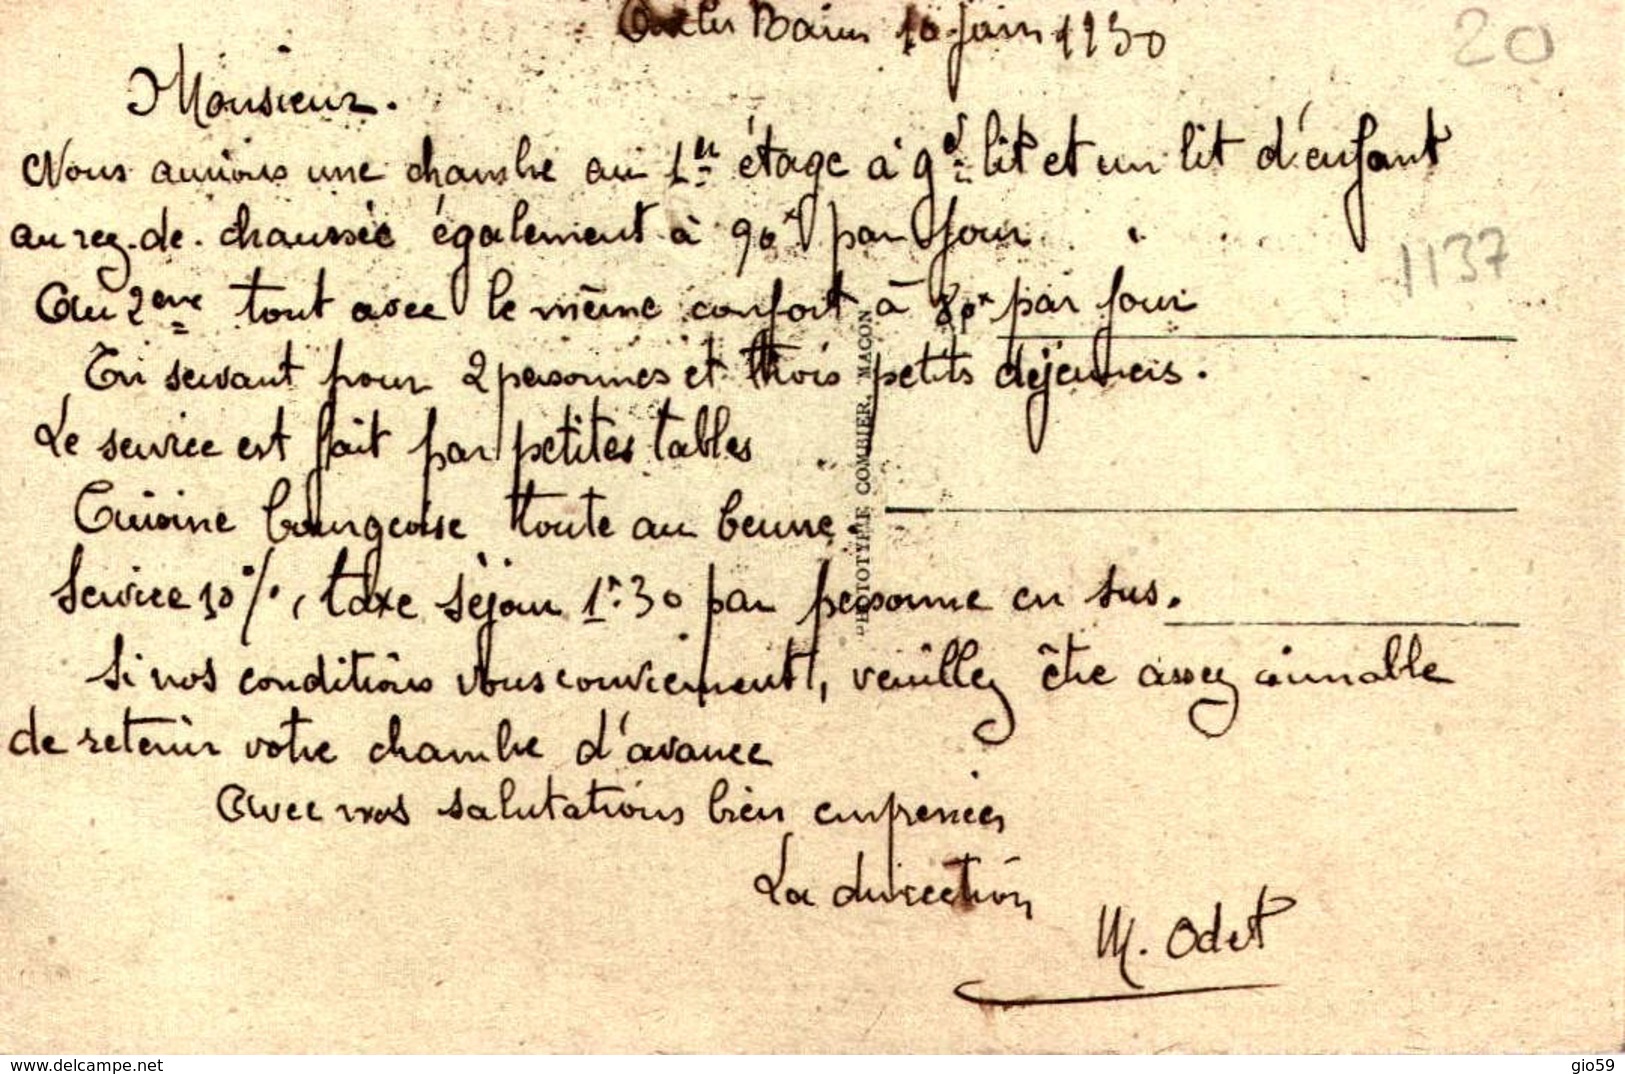 Aix les Bains 10 Juin 1930
20
Monsieur.
Nous aurions une chambre au 1er étage à gd lit et un lit d'enfant
au rez-de-chaussée également à 90f par jour
1137
Au 2eme tout avec le même confort à 80f par jour
En servant pour 2 personnes et trois petits déjeuners.
Le service est fait par petites tables
Cuisine bourgeoise toute au beurre.
Service 10%, taxe séjour 1f.30 par personne en sus.
Si nos conditions vous conviennent, veuillez être assez aimable
de retenir votre chambre d'avance
Avec nos salutations bien empressées
La direction
M. Odet
PHOTOTYPIE COMBIER, MACON
www.delcampe.net
gio59